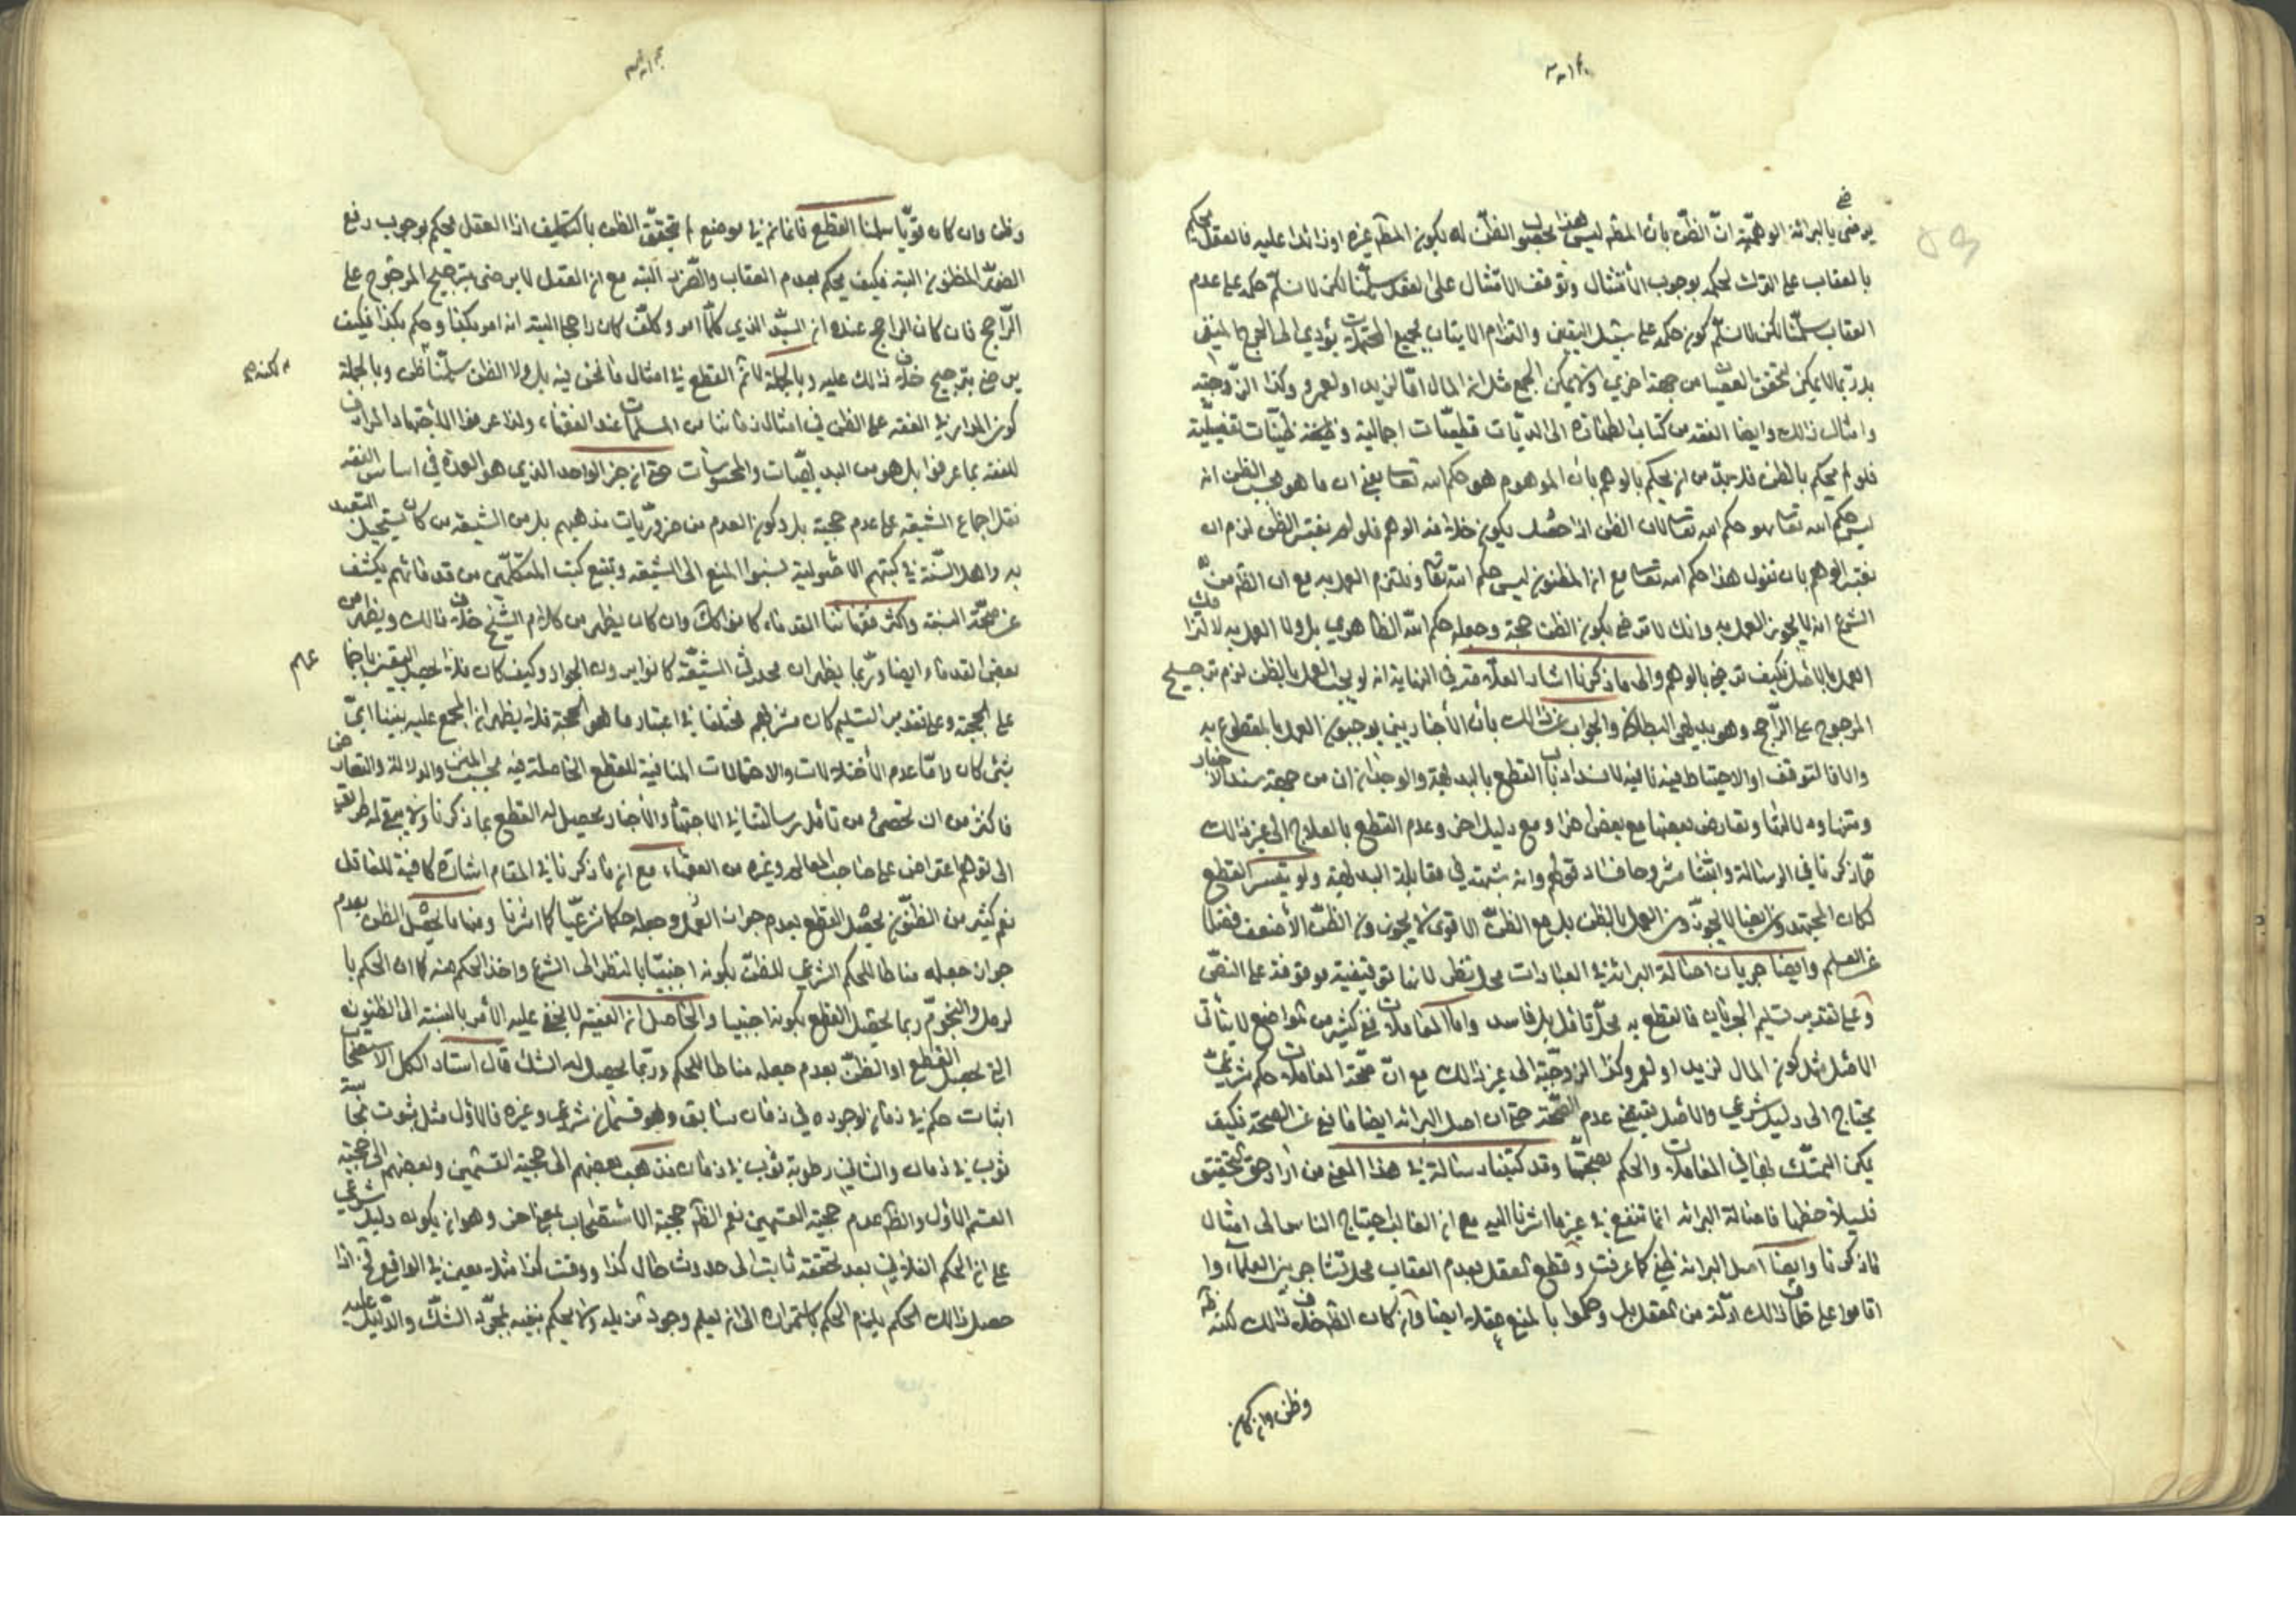 يرضى بالبرائة الوهمية ان الظن بان المظ ليس هذا يحصل الظن له بكون المظ غيره او زائدا عليه فالعقل يحكم
بالعقاب على الترك لحكمه بوجوب الامتثال وتوقف الامتثال على العقل سلمنا لكن لا نسلم حكمه على عدم
العقاب سلمنا لكن لا نسلم كون حكمه على سبيل اليقين والتزام الاتيان بجميع المحتملات يؤدي الى الحرج المنفى
بل ربما لا يمكن لتحقق العقاب من جهة اخرى ولا يمكن الجمع مثل ان المال اما لزيد او لعمرو وكذا الزوجية
وامثال ذلك وايضا الفقه من كتاب الطهارة الى الديات قطعيات اجمالية وظنية ظنيات تفصيلية
فلو لم يحكم بالظن فلا بد من ان يحكم بالوهم بان الموهوم هو حكم الله تعالى يعني ان ما هو بحسب الظن انه
ليس حكم الله تعالى هو حكم الله تعالى لان الظن اذا حصل يكون خلافه الوهم فلو لم يعتبر الظن لزم ان
نعتبر الوهم بان نقول هذا حكم الله تعالى مع ان المظنون ليس حكم الله تعالى ونلتزم العمل به مع ان الظ من
الشرع انه لا يجوز العمل به وانك لا ترضى بكون الظن حجة وجعله حكم الله الظاهري بل ولا العمل به
العمل بالاصل فكيف ترضى بالوهم والى ما ذكرنا اشار العلامة في النهاية انه لو لم يجب العمل بالظن لزم ترجيح
المرجوح على الراجح وهو بديهي البطلان والجواب عن ذلك بان الأخباريين يوجبون العمل بالمقطوع به
والا فالتوقف او الاحتياط فيه لانسداد باب القطع بالبديهة والوجدان من جهة سند الاخبار
ومتنها ودلالتها وتعارض بعضها مع بعض اخر ومع دليل اخر وعدم القطع بالعلاج الى غير ذلك
مما ذكرنا في الرسالة واثبتنا مشروحا فساد قولهم وانه شبهة في مقابلة البديهة ولو تيسر القطع
لكان المجتهدون ايضا لا يجوزون العمل بالظن بل مع الظن الاقوى لا يجوزون الظن الأضعف فضلا
عن العلم وايضا جريان اصالة البرائة في العبادات محل نظر لانها توقيفية موقوفة على النص
وعلى تقدير تسليم الجريان فالقطع به محل تامل بل فاسد واما المعاملات ففي كثير من المواضع لا يتأتى
الاصل مثل كون المال لزيد او لعمرو وكذا الزوجية الى غير ذلك مع ان صحة المعاملات حكم شرعي
يحتاج الى دليل شرعي والاصل يقتضي عدم الصحة حتى ان اصل البرائة ايضا مانع عن الصحة فكيف
يمكن التمسك بها في المعاملات والحكم بصحتها وقد كتبنا رسالة في هذا المعنى من اراد حق التحقيق
فليلاحظها فاصالة البرائه انما تنفع في غير ما اشرنا اليه مع ان الغالب يحتاج الناس الى امثال
ما ذكرنا وايضا اصل البرائة ظني كما عرفت وقطع العقل بعدم العقاب محل تشاجر بين العلماء وا
اقاموا على خلاف ذلك ادلة من العقل بل وحكموا بالمنع عقلا ايضا وان كان الظ خلاف ذلك لكنه ظ
وظن وان كان
وظن وان كان قويا سلمنا القطع فانما تم في موضع لم يتحقق الظن بالتكليف اذ العقل يحكم بوجوب دفع
الضرر المظنون البتة فكيف يحكم بعدم العقاب والضرر البتة مع ان العقل لا يرضى بترجيح المرجوح على
الراجح فان كان الراجح عنده ان السيد الذي كلما امر وكلف كان راجحا البته انه امر بكذا وحكم بكذا فكيف
يرضى بترجيح خلاف ذلك عليه وبالجملة لا نم القطع في امثال ما نحن فيه بل ولا الظن سلمنا ظن وبالجملة
كون المدار في الفقه على الظن في امثال زماننا من المسلمات عند الفقهاء ولذا عرفوا الاجتهاد المرادف
للفقه بما عرفوا بل هو من البديهيات والمحسوسات حتى ان خبر الواحد الذي هو العمدة في اساس الفقه
نقل اجماع الشيعة على عدم حجيته بل وكون العدم من ضروريات مذهبهم بل من الشيعة من كان يستحيل التعبد
به واهل السنة في كتبهم الاصولية نسبوا المنع الى الشيعة وتتبع كتب المتكلمين من قدمائهم يكشف
عن صحة النسبة واكثر فقهائنا القدماء كانوا كك وان كان يظهر من كلام الشيخ خلاف ذلك ويظهر من
بعض القدماء ايضا وربما يظهر ان محدثي الشيعة كانوا يرون الجواز وكيف كان فلا يحصل اليقين باجما
على الحجية وعلى تقدير التسليم كان مشربهم مختلفا في اعتبار ما هو الحجة فلا يظهر ان المجمع عليه بيننا اي
شئ كان واما عدم الأختلالات والاحتمالات المنافية للقطع الحاصلة فيه بحسب المتن والدلالة والتعارض
فاكثر من ان تحصى من تامل رسالتنا في الاجتهاد والأخبار يحصل له القطع بما ذكرنا ولا يبقى له طريق
الى توهم اعتراض على صاحب المعالم وغيره من الفقهاء مع ان ما ذكرنا في المقام اشارة كافية للعاقل
نعم كثير من الظنون يحصل القطع بعدم جواز العمل وجعله حكما شرعيا كما اشرنا ومنها ما يحصل الظن بعدم
جواز جعله مناطا للحكم الشرعي للظن بكونه اجنبيا بالنظر الى الشرع واخذ الحكم منه كما ان الحكم با
لرمل والنجوم ربما يحصل القطع بكونه اجنبيا والحاصل ان الفقيه لا يخفى عليه الأمر بالنسبة الى الظنون
التي يحصل القطع او الظن بعدم جعله مناطا للحكم وربما يحصل له الشك قال استاد الكل الاستصحاب
اثبات حكم في زمان لوجوده في زمان سابق وهو قسمان شرعي وغيره فالاول مثل ثبوت نجاسة
ثوب في زمان والثاني رطوبة ثوب في زمان فذهب بعضهم الى حجية القسمين وبعضهم الى حجية
القسم الاول والظ عدم حجية القسمين نعم الظ حجية الاستصحاب بمعنى اخر وهو ان يكون دليل شرعي
على ان الحكم الفلاني بعد تحققه ثابت الى حدوث حال كذا ووقت كذا مثلا معين في الواقع فح اذا
حصل ذلك الحكم يلزم الحكم باستمراره الى ان يعلم وجود مزيله ولا يحكم بنفيه بمجرد الشك والدليل عليه